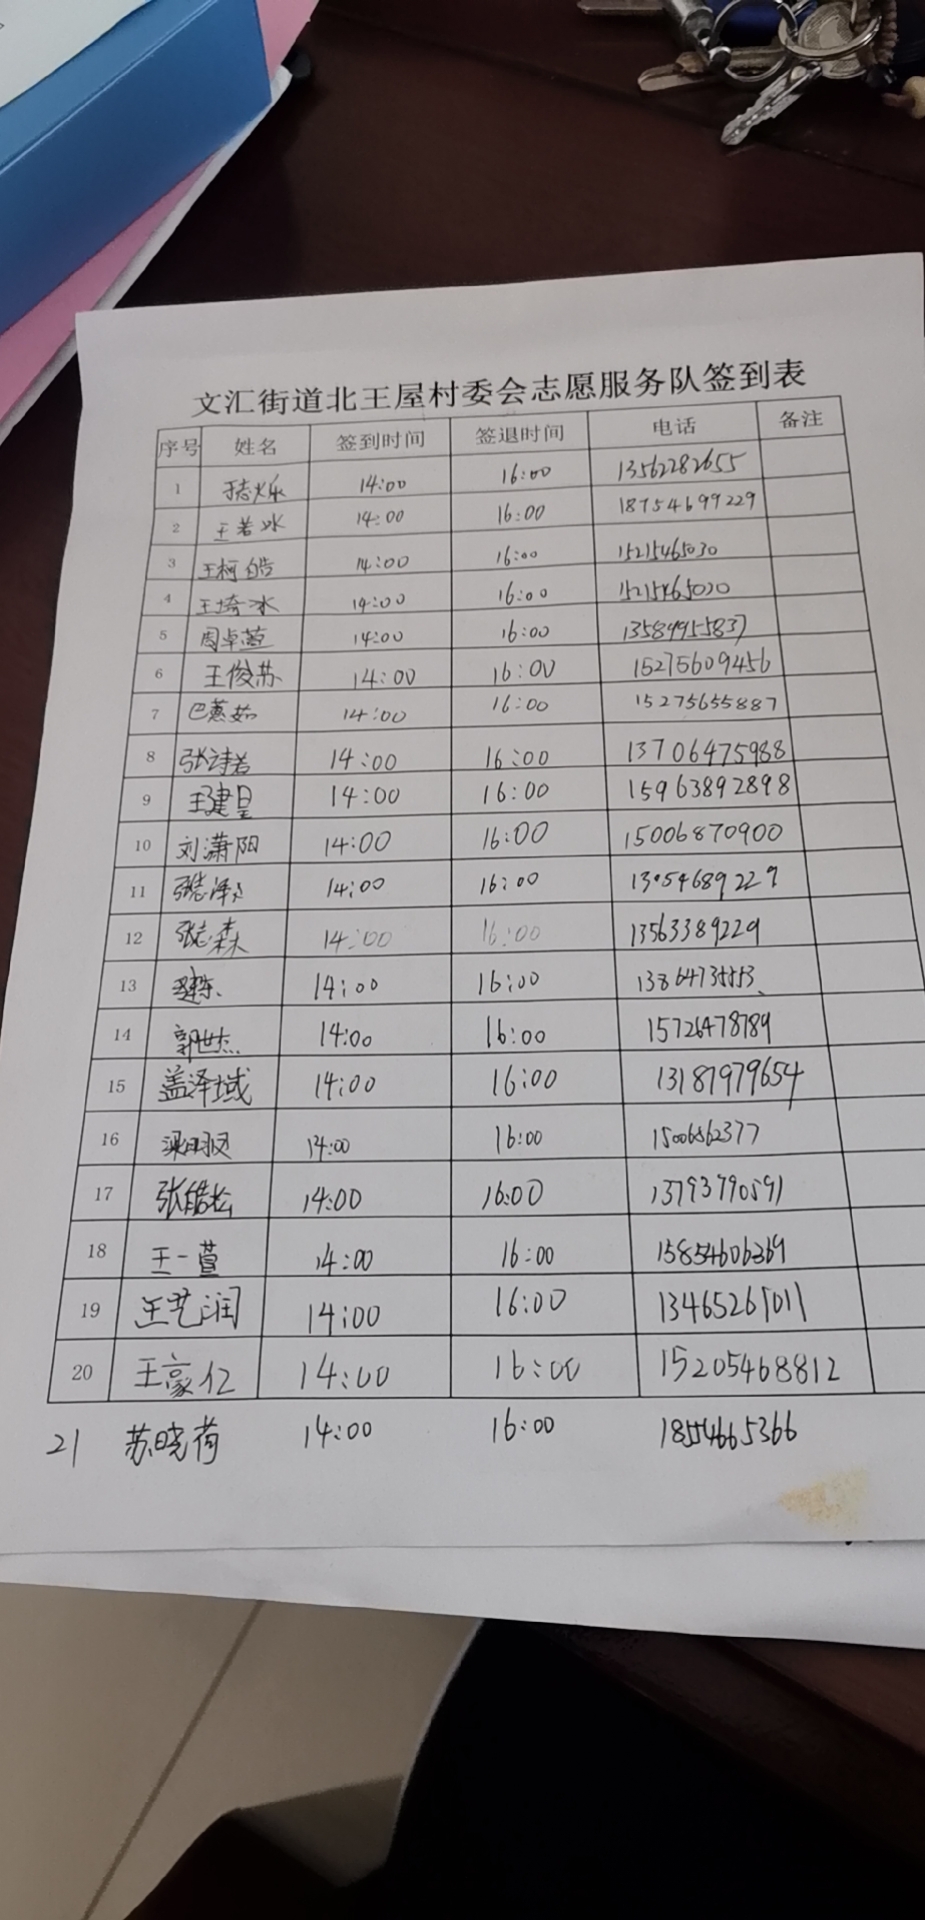 文汇街道北王屋村委会志愿服务队签到表
序号 姓名 签到时间 签退时间 电话 备注
1 14:00 16:00 13562282655
2 王若冰 14:00 16:00 18754699229
3 王柯皓 14:00 16:00 15215465030
4 王琦冰 14:00 16:00
5 周卓萱 14:00 16:00 13589955837
6 王俊苏 14:00 16:00 15275609456
7 巴蕙茹 14:00 16:00 15275655887
8 张诗若 14:00 16:00 13706475988
9 王建皇 14:00 16:00 15963892898
10 刘潇阳 14:00 16:00 15006870900
11 14:00 16:00 13054689229
12 张志森 14:00 16:00 13563389229
13 14:00 16:00
14 郭世杰 14:00 16:00 15726478789
15 盖泽域 14:00 16:00 13181979654
16 14:00 16:00 15006862377
17 张皓松 14:00 16:00 13793790591
18 王一萱 14:00 16:00 15854606369
19 王艺润 14:00 16:00
20 王豪亿 14:00 16:00 15205468812
21 苏晓荷 14:00 16:00 18554665366